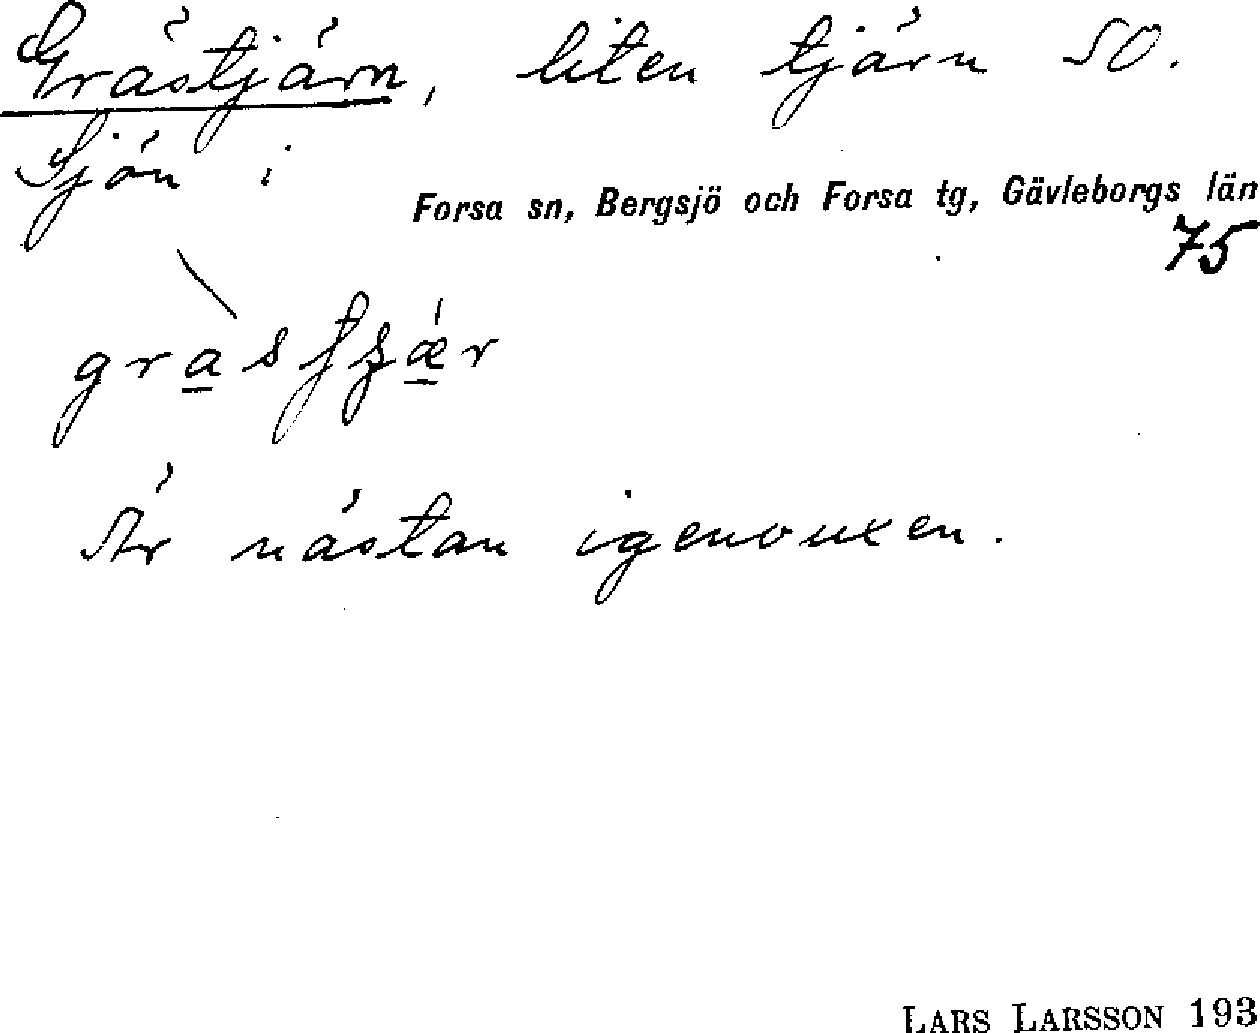 Grästjärn, liten tjärn SO.
Sjön i
Forsa sn, Bergsjö och Forsa tg, Gävleborgs län
75
Är nästan igenvuxen.
LARS LARSSON 193